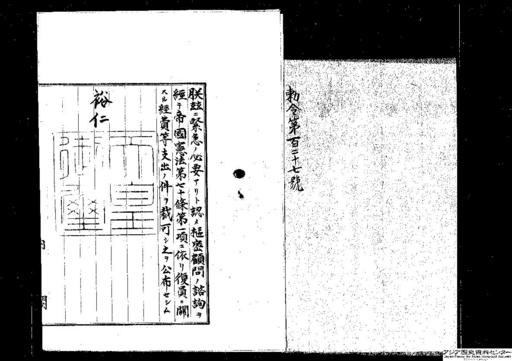 勅令第百二十七號
朕玆ニ緊急ノ必要アリト認メ樞密顧問ノ諮詢ヲ
經テ帝國憲法第七十條第一項ニ依リ復員ニ關
スル經費等支出ノ件ヲ裁可シ之ヲ公布セシム
裕仁
天皇
御璽
内閣
アジア歴史資料センター